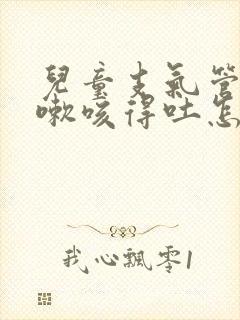 兒童支氣管
嗽咳得吐怎
我心飄零1